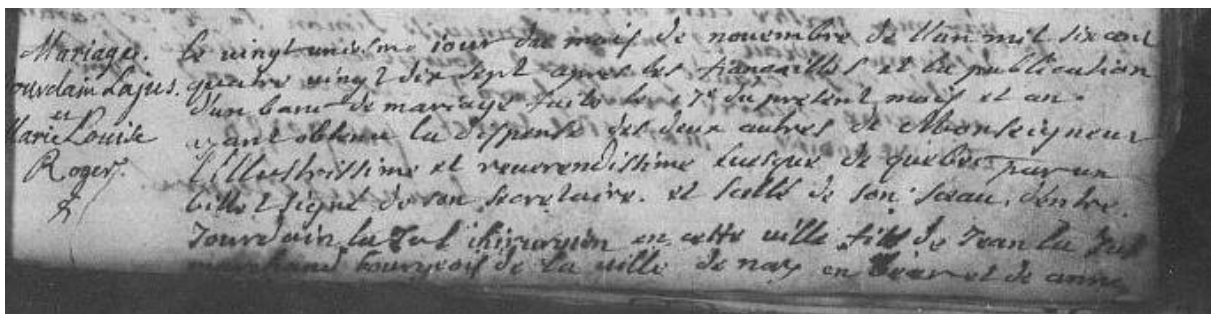 Mariage.
Jourdain Lajus.
et
Marie Louise
Roger.
le vingt uniesme iour du mois de novembre de l'an mil six cent
quatre vingt dix sept apres les fiançailles et la publication
d'un banc de mariage faite le 17e du present mois et an
ayant obtenu la dispense des deux autres de Monseigneur
l'Illustrissime et reverendissime Euesque de quebec par un
billet signé de son secretaire. et scellé de son sceau, d'entre.
Jourdain la Jus chirurgien en cette ville fils de Jean la Jus
marchand bourgeois de la ville de nay en Bear et de anne